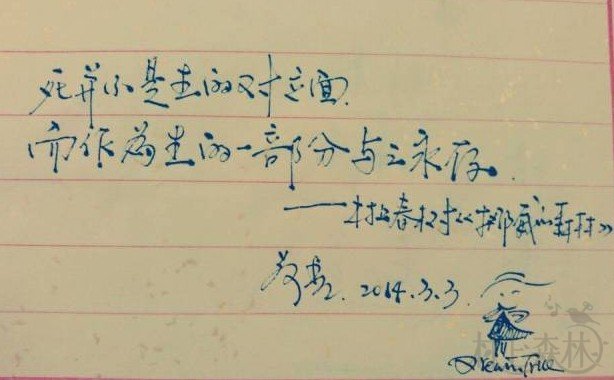 死并不是生的对立面.
而作为生的一部分与之永存.
——村上春树《挪威的森林》
2014.3.3.
Dream Tree
村上森林